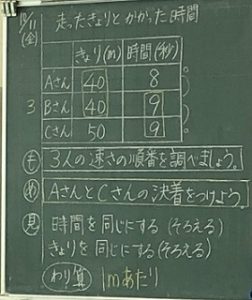 9/11
(金)
走ったきょりとかかった時間
きょり(m) 時間(秒)
Aさん 40 8
3 Bさん 40 9
Cさん 50 9
も 3人の速さの順番を調べましょう。
め AさんとCさんの決着をつけよう。
見 時間を同じにする(そろえる)
きょりを同じにする(そろえる)
わり算 1mあたり